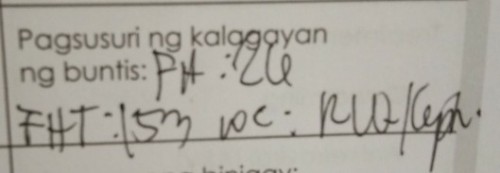 Pagsusuri ng kalagayan
ng buntis: FH: 26
FHT: 153 LOC: RLQ/Ceph.